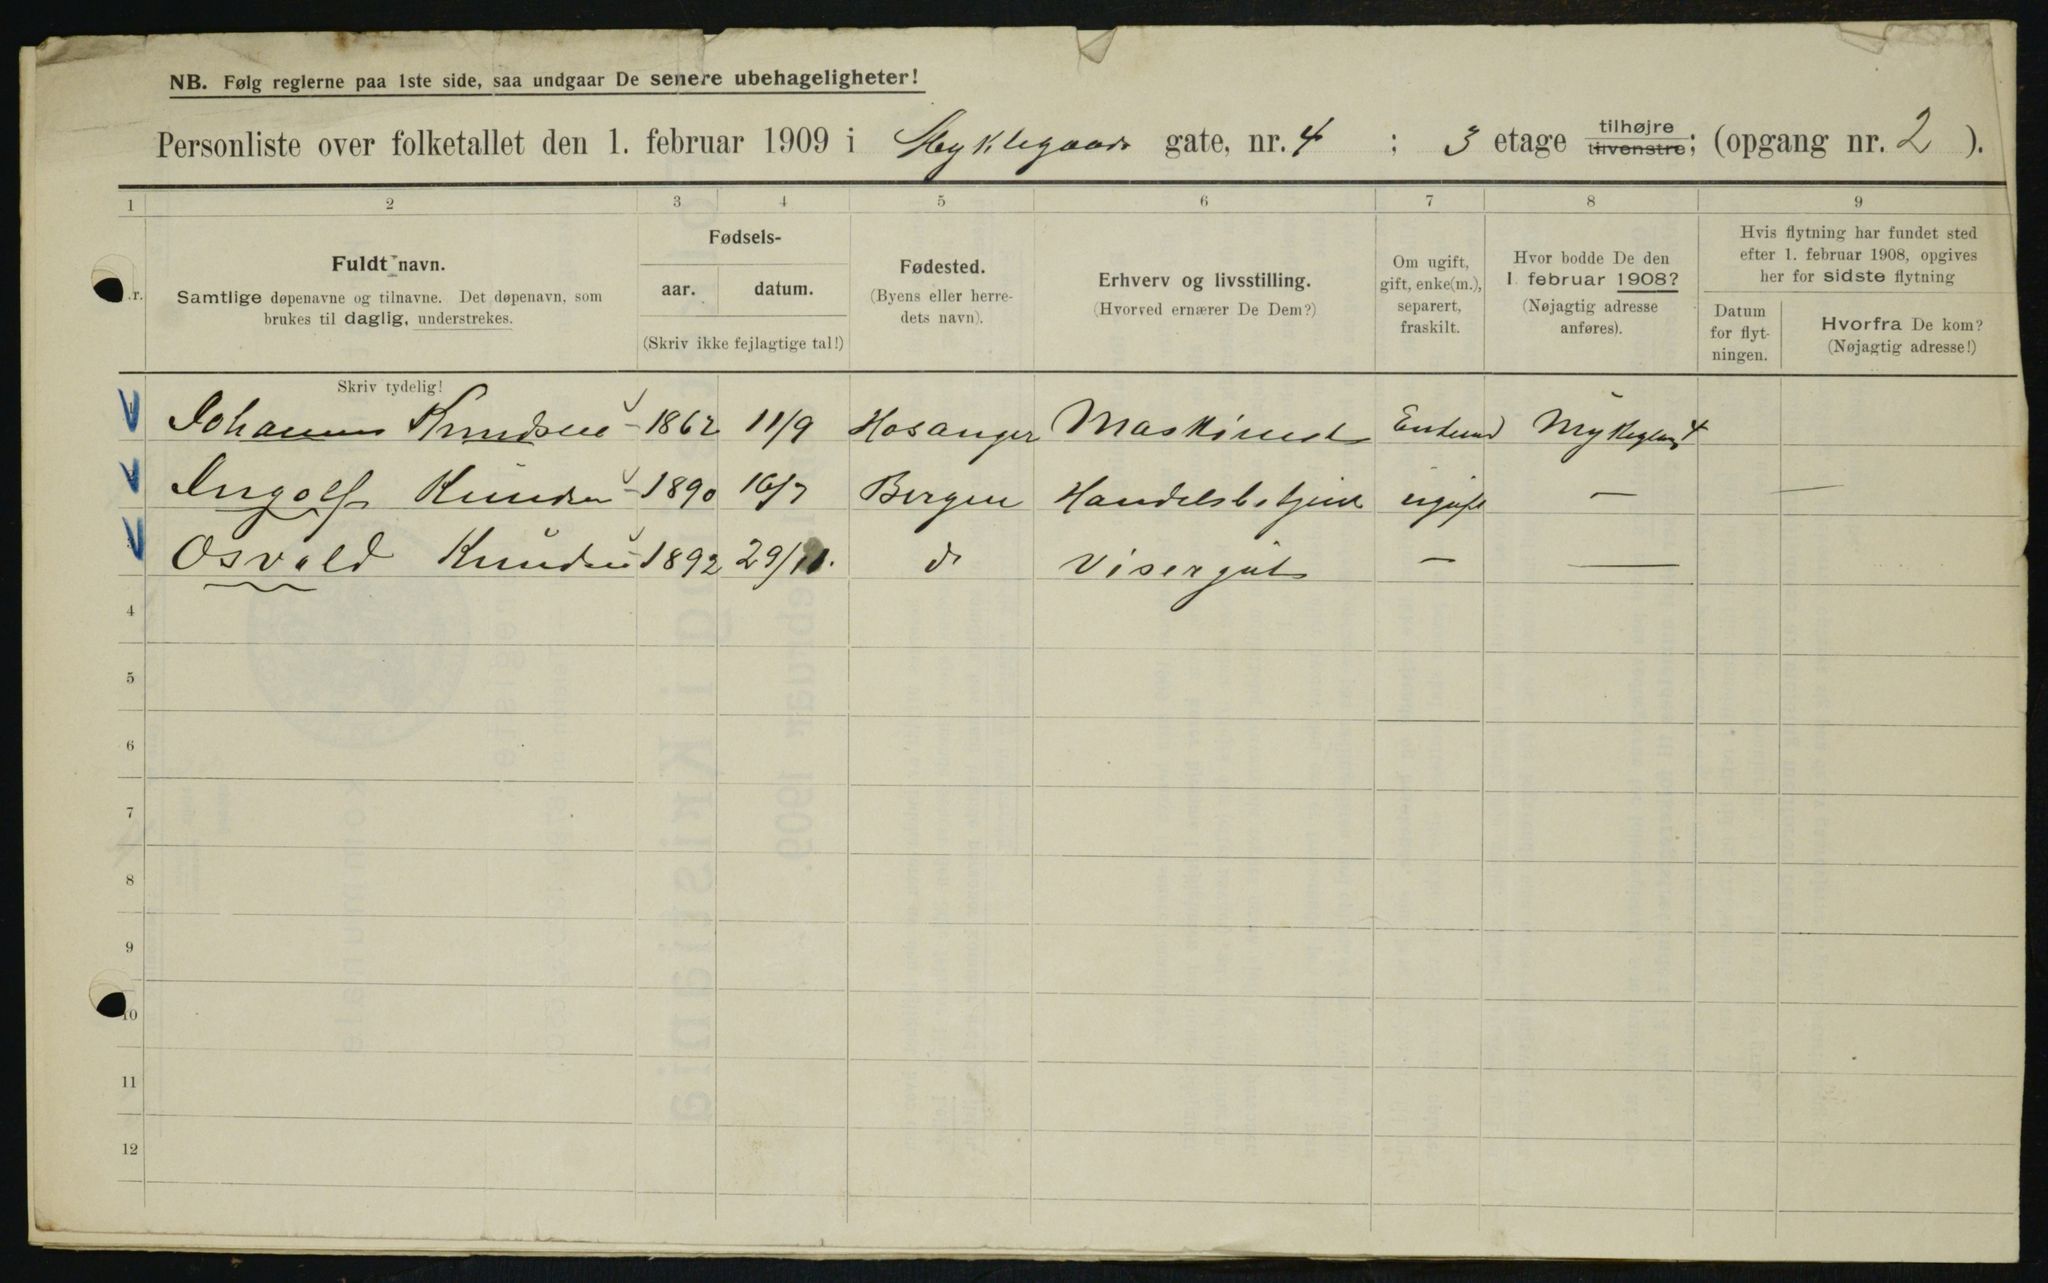 NB. Følg reglerne paa 1ste side, saa undgaar De senere ubehageligheter!
Personliste over folketallet den 1. februar 1909 i Myklegaards gate, nr. 4 ; 3 etage tilhøjre tilvenstre; (opgang nr. 2 ).
1 2 3 4 5 6 7 8 9
Fuldt navn.
Samtlige døpenavne og tilnavne. Det døpenavn, som
brukes til daglig, understrekes.
Skriv tydelig!
Fødsels-
aar. datum.
(Skriv ikke fejlagtige tal!)
Fødested.
(Byens eller herre-
dets navn).
Erhverv og livsstilling.
(Hvorved ernærer De Dem?)
Om ugift,
gift, enke(m.),
separert,
fraskilt.
Hvor bodde De den
1. februar 1908?
(Nøjagtig adresse
anføres).
Hvis flytning har fundet sted
efter 1. februar 1908, opgives
her for sidste flytning
Datum
for flyt-
ningen.
Hvorfra De kom?
(Nøjagtig adresse!)
Johannes Knudsen - 1862 11/9 Hosanger Maskinist 4
Ingolf Knudsen - 1890 16/7 Bergen ugift — —
Osvald Knudsen - 1892 29/11. d Visergut — —
4
5
6
7
8
9
10
11
12